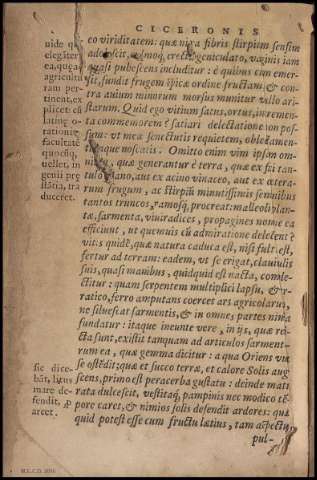 CICERONIS
eo viriditatem: quæ nixa fibris stirpium sensim
adolescit, culmoq́; erecta geniculato, vaginis iam
quasi pubescens includitur: è quibus cum emer-
sit, fundit frugem spicæ ordine structam, & con-
tra auium minorum morsus munitur vallo ari-
starum. Quid ego vitium satus, ortus, incremen
ta commemorem? satiari delectatione non pos-
sum: vt meæ senectutis requietem, oblectamen-
tumque noscatis. Omitto enim vim ipsam om-
nium, quæ generantur è terra, quæ ex fici tan-
tulo grano, aut ex acino vinaceo, aut ex cætera-
rum frugum, ac stirpium minutissimis seminibus
tantos truncos, ramosq́; procreat: malleoli plan-
tæ, sarmenta, viuiradices, propagines nonne ea
efficiunt, vt quemuis cũ admiratione delectent?
vitis quidẽ, quæ natura caduca est, nisi fulta est,
fertur ad terram: eadem, vt se erigat, clauiculis
suis, quasi manibus, quidquid est nacta, comple-
ctitur: quam serpentem multiplici lapsu, & er-
ratico, ferro amputans coercet ars agricolarum,
ne siluescat sarmentis, & in omnes partes nimia
fundatur: itaque ineunte vere, in ijs, quæ reli-
cta sunt, existit tanquam ad articulos sarmen-
torum ea, quæ gemma dicitur: a qua Oriens vua
se ostẽdit; quæ et succo terræ, et calore Solis aug
scens, primo est peracerba gustatu: deinde matu
rata dulcescit, vestitaq́; pampinis nec modico te-
pore caret, & nimios solis defendit ardores: qua
quid potest esse cum fructu lætius, tum aspectu
pul-
uide quã
elegãter
ea, quæ ad
agricultu
ram per-
tinent, ex
plicet: cũ
latinę o-
rationis
facultatē
quocũq́;
uellet, in
genii præ
stãtia, tra
duceret.
sic dice-
bãt, litus
mare de-
fendit, p
arcet.